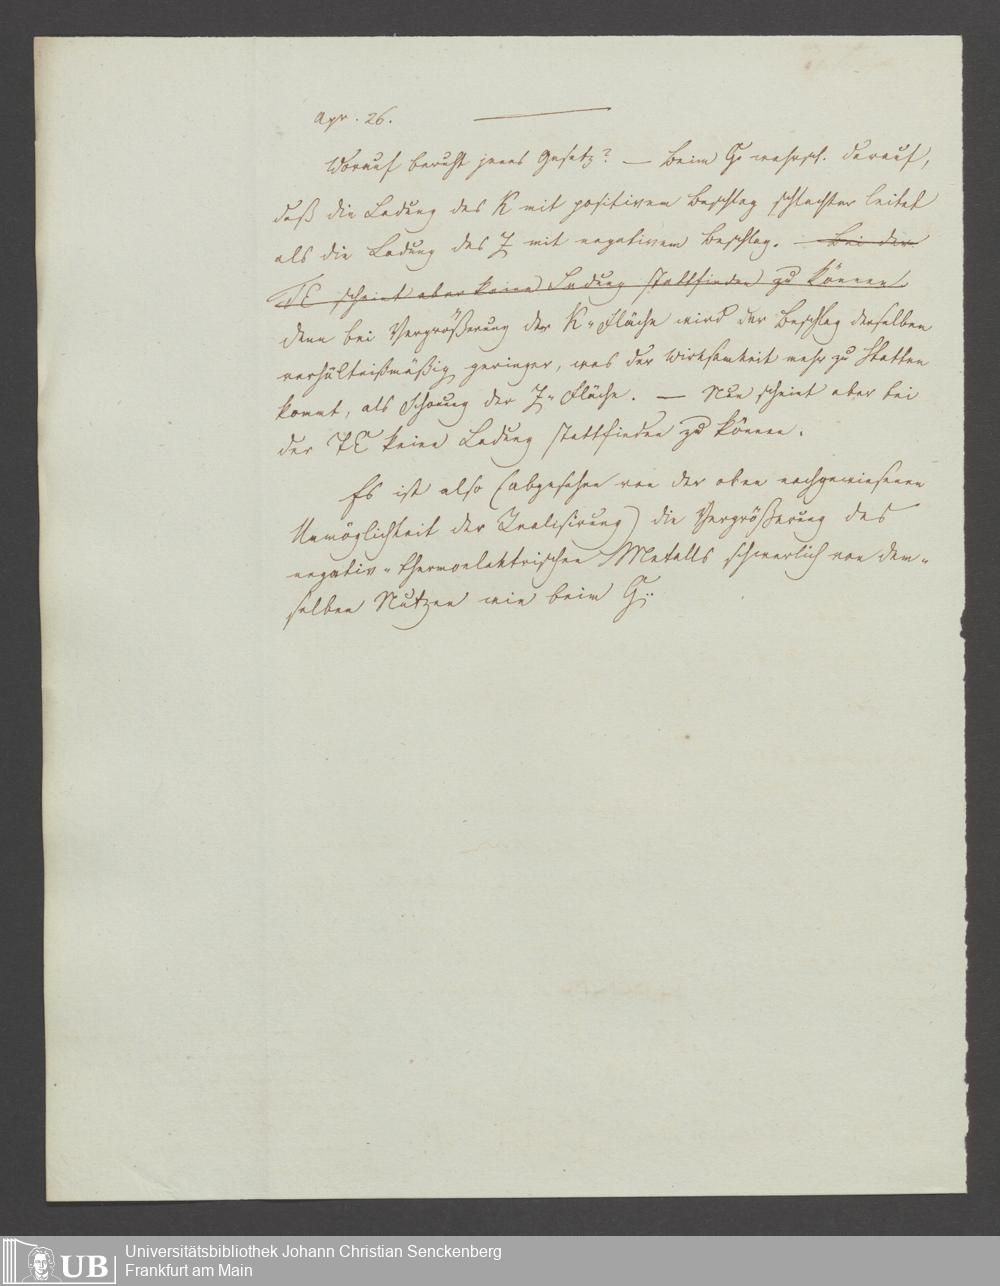 Apr. 26.
Worauf beruht jenes Gesetz? — Beim G. wahrsch. darauf,
daß die Ladung des K mit positivem Beschlag schlechter leitet
als die Ladung des Z mit negativem Beschlag. — Bei der
TE scheint aber keine Ladung stattfinden zu können
denn bei Vergrößerung der K-Fläche wird der Beschlag derselben
verhältnißmäßig geringer, was der Wirksamkeit mehr zu Statten
kommt, als Schonung der Z-Fläche. — Nun scheint aber bei
der TE keine Ladung stattfinden zu können.
Es ist also (abgesehen von der oben nachgewiesenen
Unmöglichkeit der Realisirung) die Vergrößerung des
negativ-thermoelektrischen Metalls schwerlich von dem-
selben Nutzen wie beim G.
UB
Universitätsbibliothek Johann Christian Senckenberg
Frankfurt am Main